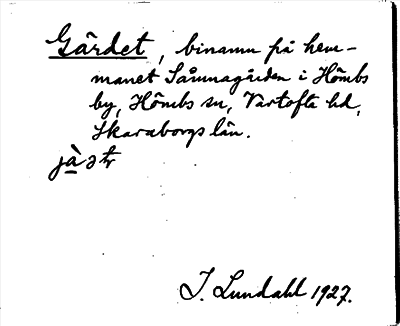 Gärdet, binamn på hem-
manet Såmnagården i Hömbs
by, Hömbs sn, Vartofta hd,
Skaraborgs län.
I. Lundahl 1927.